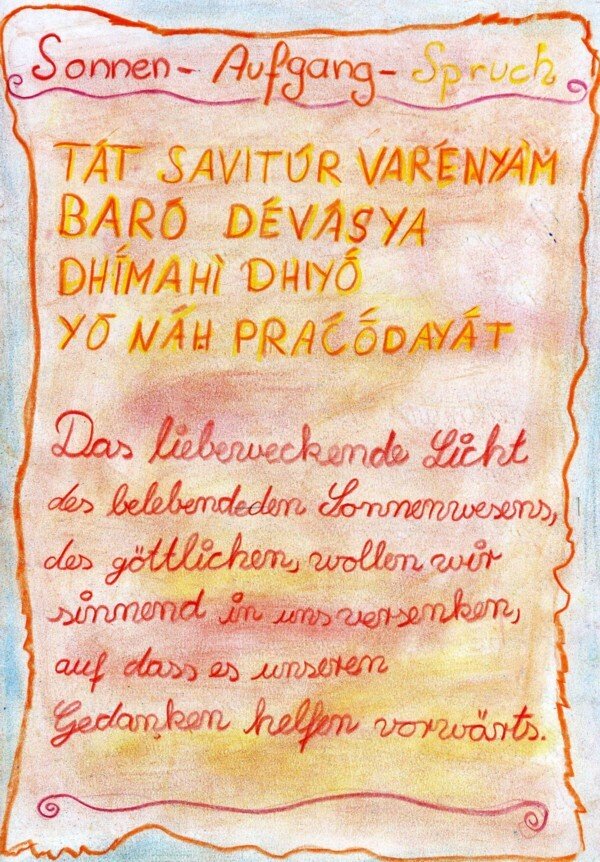 Sonnen-Aufgang-Spruch
TÁT SAVITÚR VARÉNYÀM
BARÓ DÉVÁSYA
DHÍMAHÌ DHIYÓ
YÓ NÁH PRAĆÓDAYÁT
Das lieberweckende Licht
des belebendeden Sonnenwesens,
des göttlichen, wollen wir
sinnend in uns versenken,
auf dass es unseren
Gedanken helfen vorwärts.